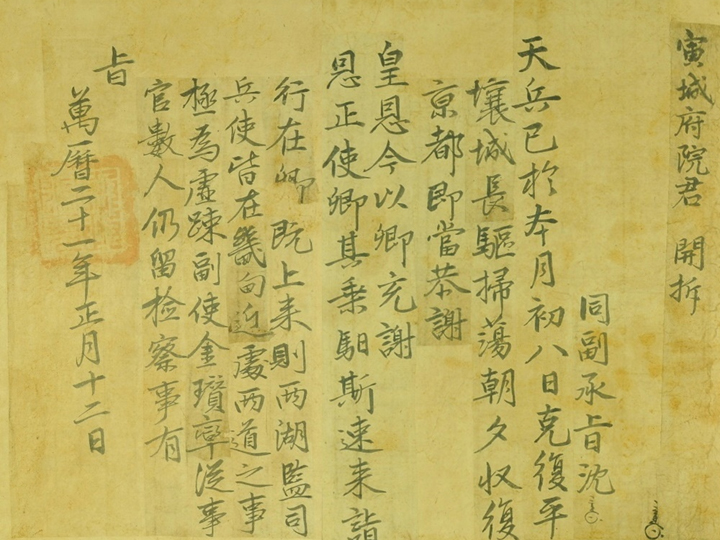 寅城府院君 開拆
同副承旨沈
天兵已於本月初八日克復平
壤城長驅掃蕩朝夕收復
京都即當恭謝
皇恩今以卿充謝
恩正使卿其乘馹斯速来詣
行在卿既上来則兩湖監司
兵使皆在畿甸近處兩道之事
極為虛踈副使金瓚率從事
官數人仍留檢察事有
旨
萬曆二十一年正月十二日